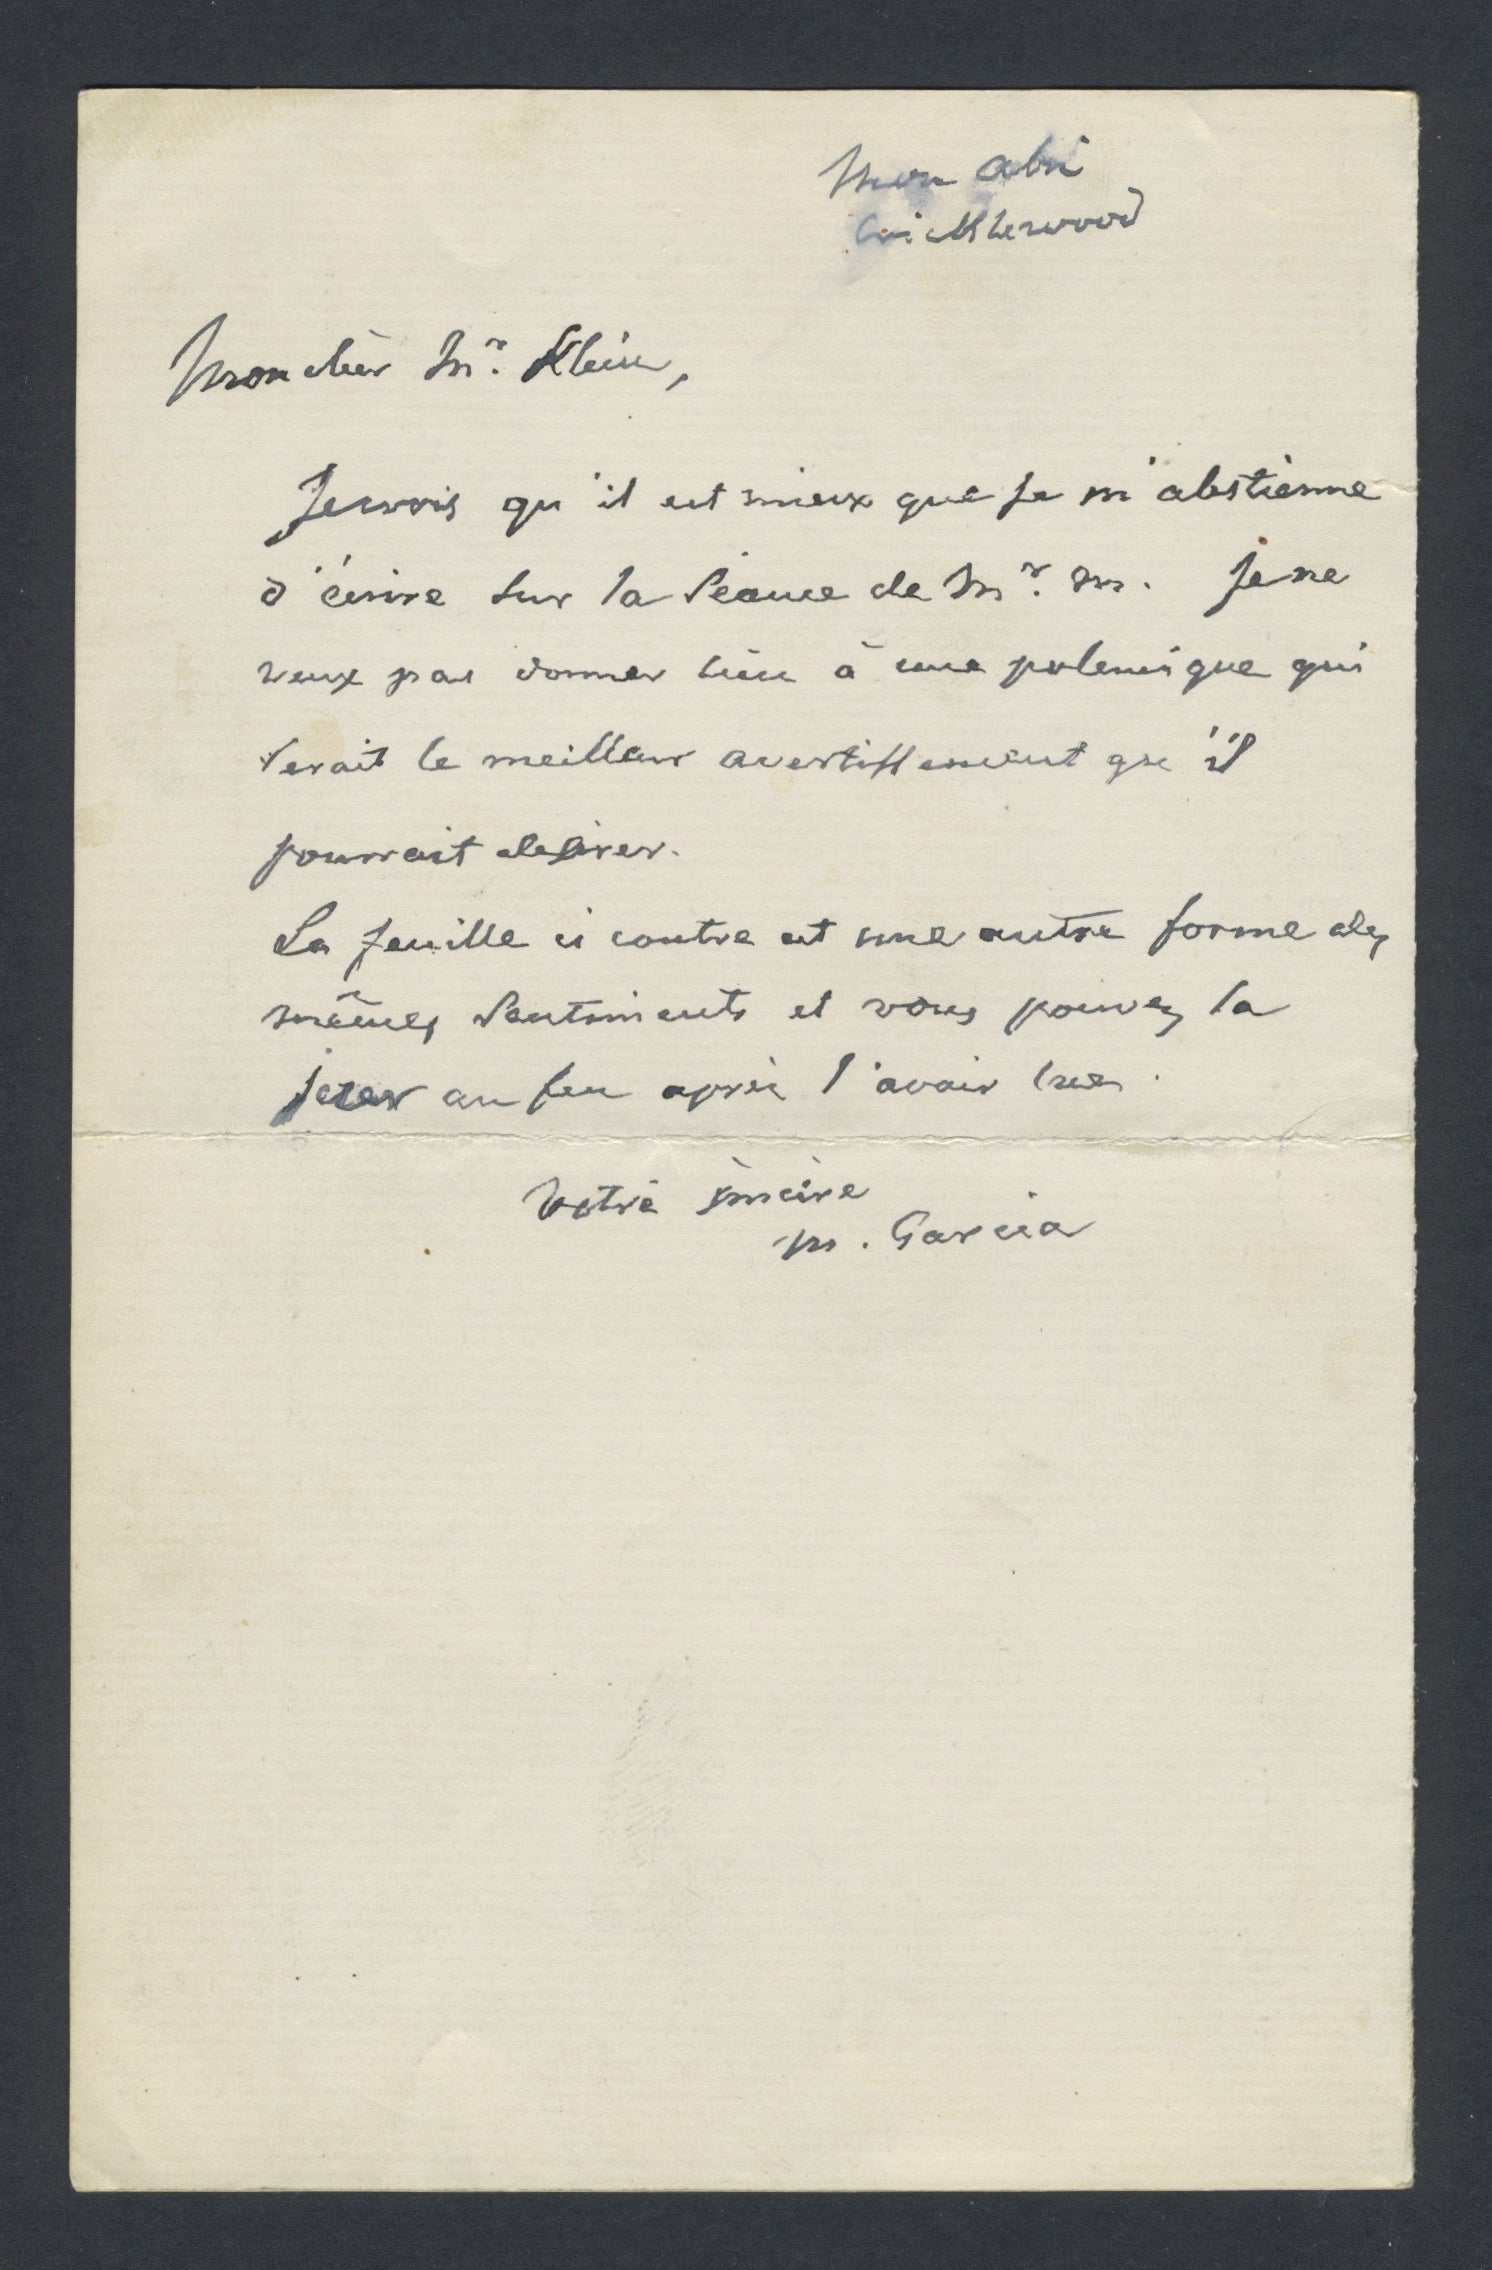 Mon abri
Cricklewood
Mon cher Mr. Klein,
Je crois qu'il est mieux que je m'abstienne
d'écrire sur la Séance de Mr. M. Je ne
veux pas donner lieu à une polemique qui
serait le meilleur avertissement qu'il
pourrait desirer.
La feuille ci contre est une autre forme des
mêmes sentiments et vous pouvez la
jeter au feu après l'avoir lue.
Votre sincère
M. Garcia